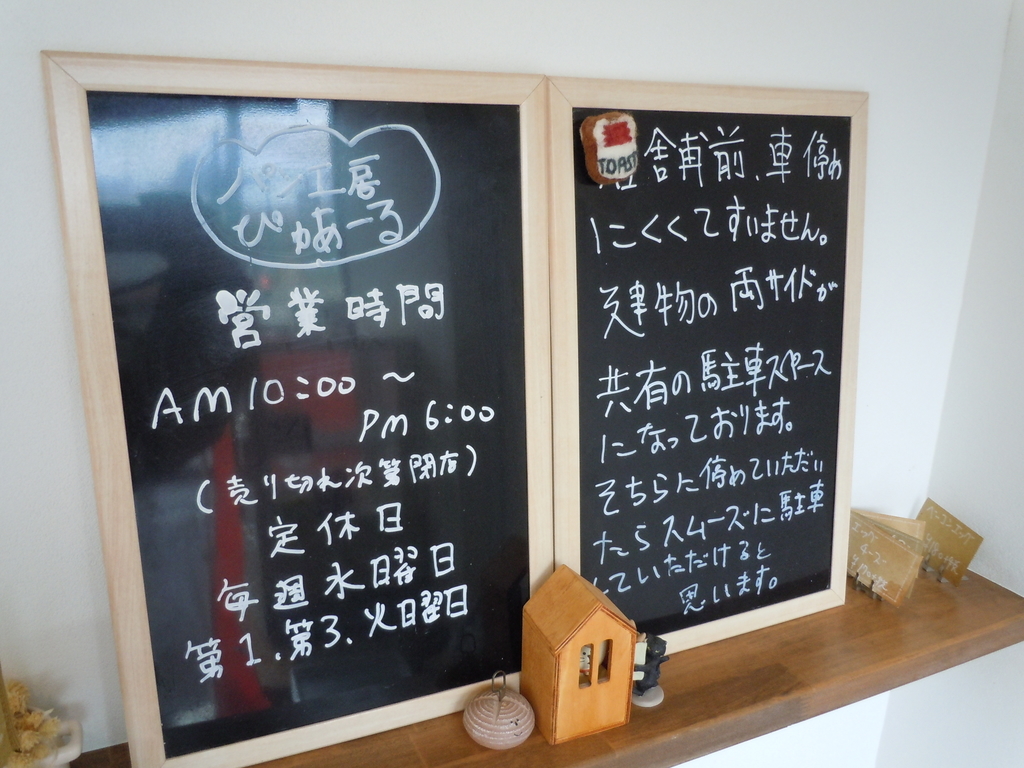 パン工房
ぴゅあーる
営業時間
AM10:00〜
PM6:00
(売り切れ次第閉店)
定休日
毎週水曜日
第1.第3.火曜日
TOAST
舗前、車停め
にくくてすいません。
建物の両サイドが
共有の駐車スペース
になっております。
そちらに停めていただい
たらスムーズに駐車
していただけると
思います。